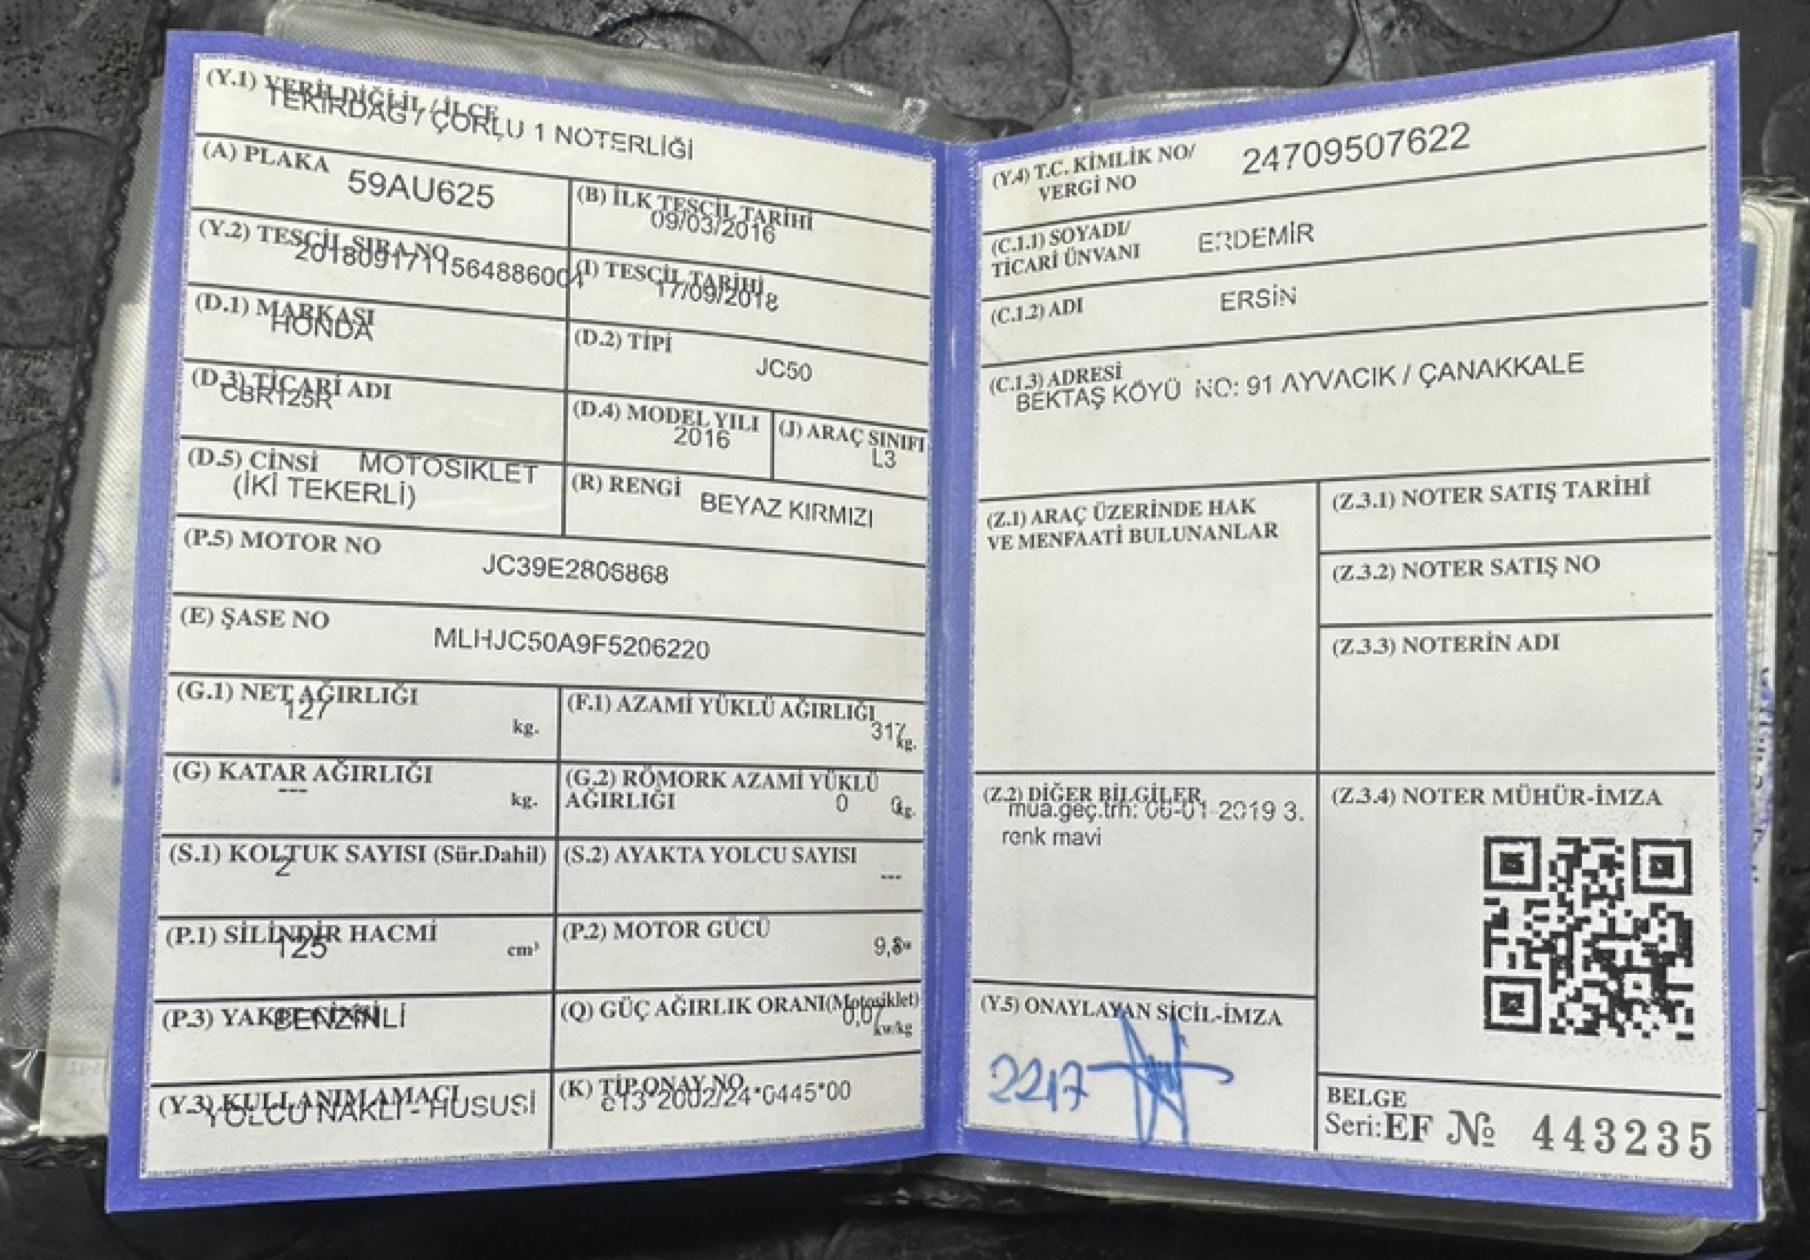 (Y.1) VERİLDİĞİ İL / İLÇE
TEKİRDAĞ / ÇORLU 1 NOTERLİĞİ
(A) PLAKA
59AU625
(B) İLK TESCİL TARİHİ
09/03/2016
(Y.2) TESCİL SIRA NO
2018091711564886004
(I) TESCİL TARİHİ
17/09/2018
(D.1) MARKASI
HONDA
(D.2) TİPİ
JC50
(D.3) TİCARİ ADI
CBR125R
(D.4) MODEL YILI
2016
(J) ARAÇ SINIFI
L3
(D.5) CİNSİ MOTOSIKLET
(İKİ TEKERLİ)
(R) RENGİ
BEYAZ KIRMIZI
(P.5) MOTOR NO
JC39E2806868
(E) ŞASE NO
MLHJC50A9F5206220
(G.1) NET AĞIRLIĞI
127
kg.
(F.1) AZAMİ YÜKLÜ AĞIRLIĞI
317
kg.
(G) KATAR AĞIRLIĞI
---
kg.
(G.2) RÖMORK AZAMİ YÜKLÜ
AĞIRLIĞI
0 0
kg.
(S.1) KOLTUK SAYISI (Sür.Dahil)
2
(S.2) AYAKTA YOLCU SAYISI
---
(P.1) SİLİNDİR HACMİ
125
cm³
(P.2) MOTOR GÜCÜ
9,8
(P.3) YAKIT CİNSİ
BENZİNLİ
(Q) GÜÇ AĞIRLIK ORANI(Motosiklet)
0,07
kw/kg
(Y.3) KULLANIM AMACI
YOLCU NAKLİ - HUSUSİ
(K) TİP ONAY NO
e13*2002/24*0445*00
(Y.4) T.C. KİMLİK NO/
VERGİ NO
24709507622
(C.1.1) SOYADI/
TİCARİ ÜNVANI
ERDEMİR
(C.1.2) ADI
ERSİN
(C.1.3) ADRESİ
BEKTAŞ KÖYÜ NO: 91 AYVACIK / ÇANAKKALE
(Z.1) ARAÇ ÜZERİNDE HAK
VE MENFAATİ BULUNANLAR
(Z.3.1) NOTER SATIŞ TARİHİ
(Z.3.2) NOTER SATIŞ NO
(Z.3.3) NOTERİN ADI
(Z.2) DİĞER BİLGİLER
mua.geç.trh: 06-01-2019 3.
renk mavi
(Z.3.4) NOTER MÜHÜR-İMZA
(Y.5) ONAYLAYAN SİCİL-İMZA
2217
BELGE
Seri:EF № 443235